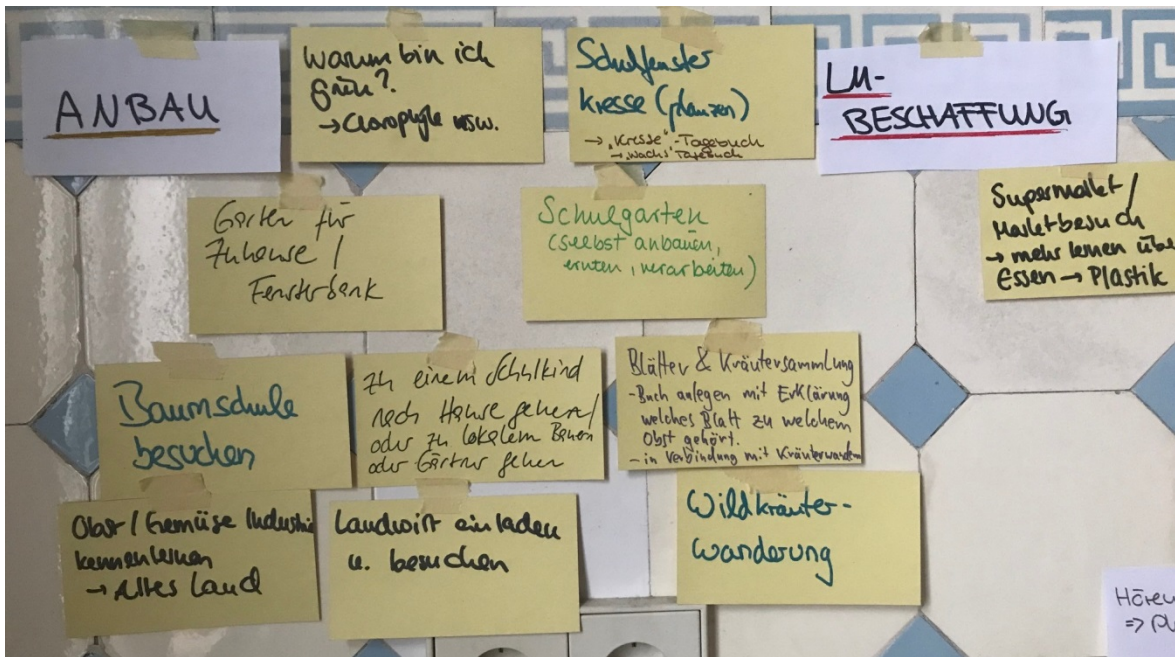 ANBAU
Warum bin ich
grün?
→ Clorophyle usw.
Schulfenster
Kresse (pflanzen)
→ „Kresse"-Tagebuch
→ „Wachs" Tagebuch
LM-
BESCHAFFUNG
Garten für
Zuhause /
Fensterbank
Schulgarten
(selbst anbauen,
ernten, verarbeiten)
Supermarkt/
Marktbesuch
→ mehr lernen übe
Essen → Plastik
Baumschule
besuchen
zu einem Schulkind
nach Hause gehen/
oder zu lokalem Bauern
oder Gärtner gehen
Blätter & Kräutersammlung
- Buch anlegen mit Erklärung
welches Blatt zu welchem
Obst gehört.
- in Verbindung mit
Obst / Gemüse Industrie
kennenlernen
→ Altes Land
Landwirt einladen
u. besuchen
Wildkräuter-
wanderung
Hören
⇒